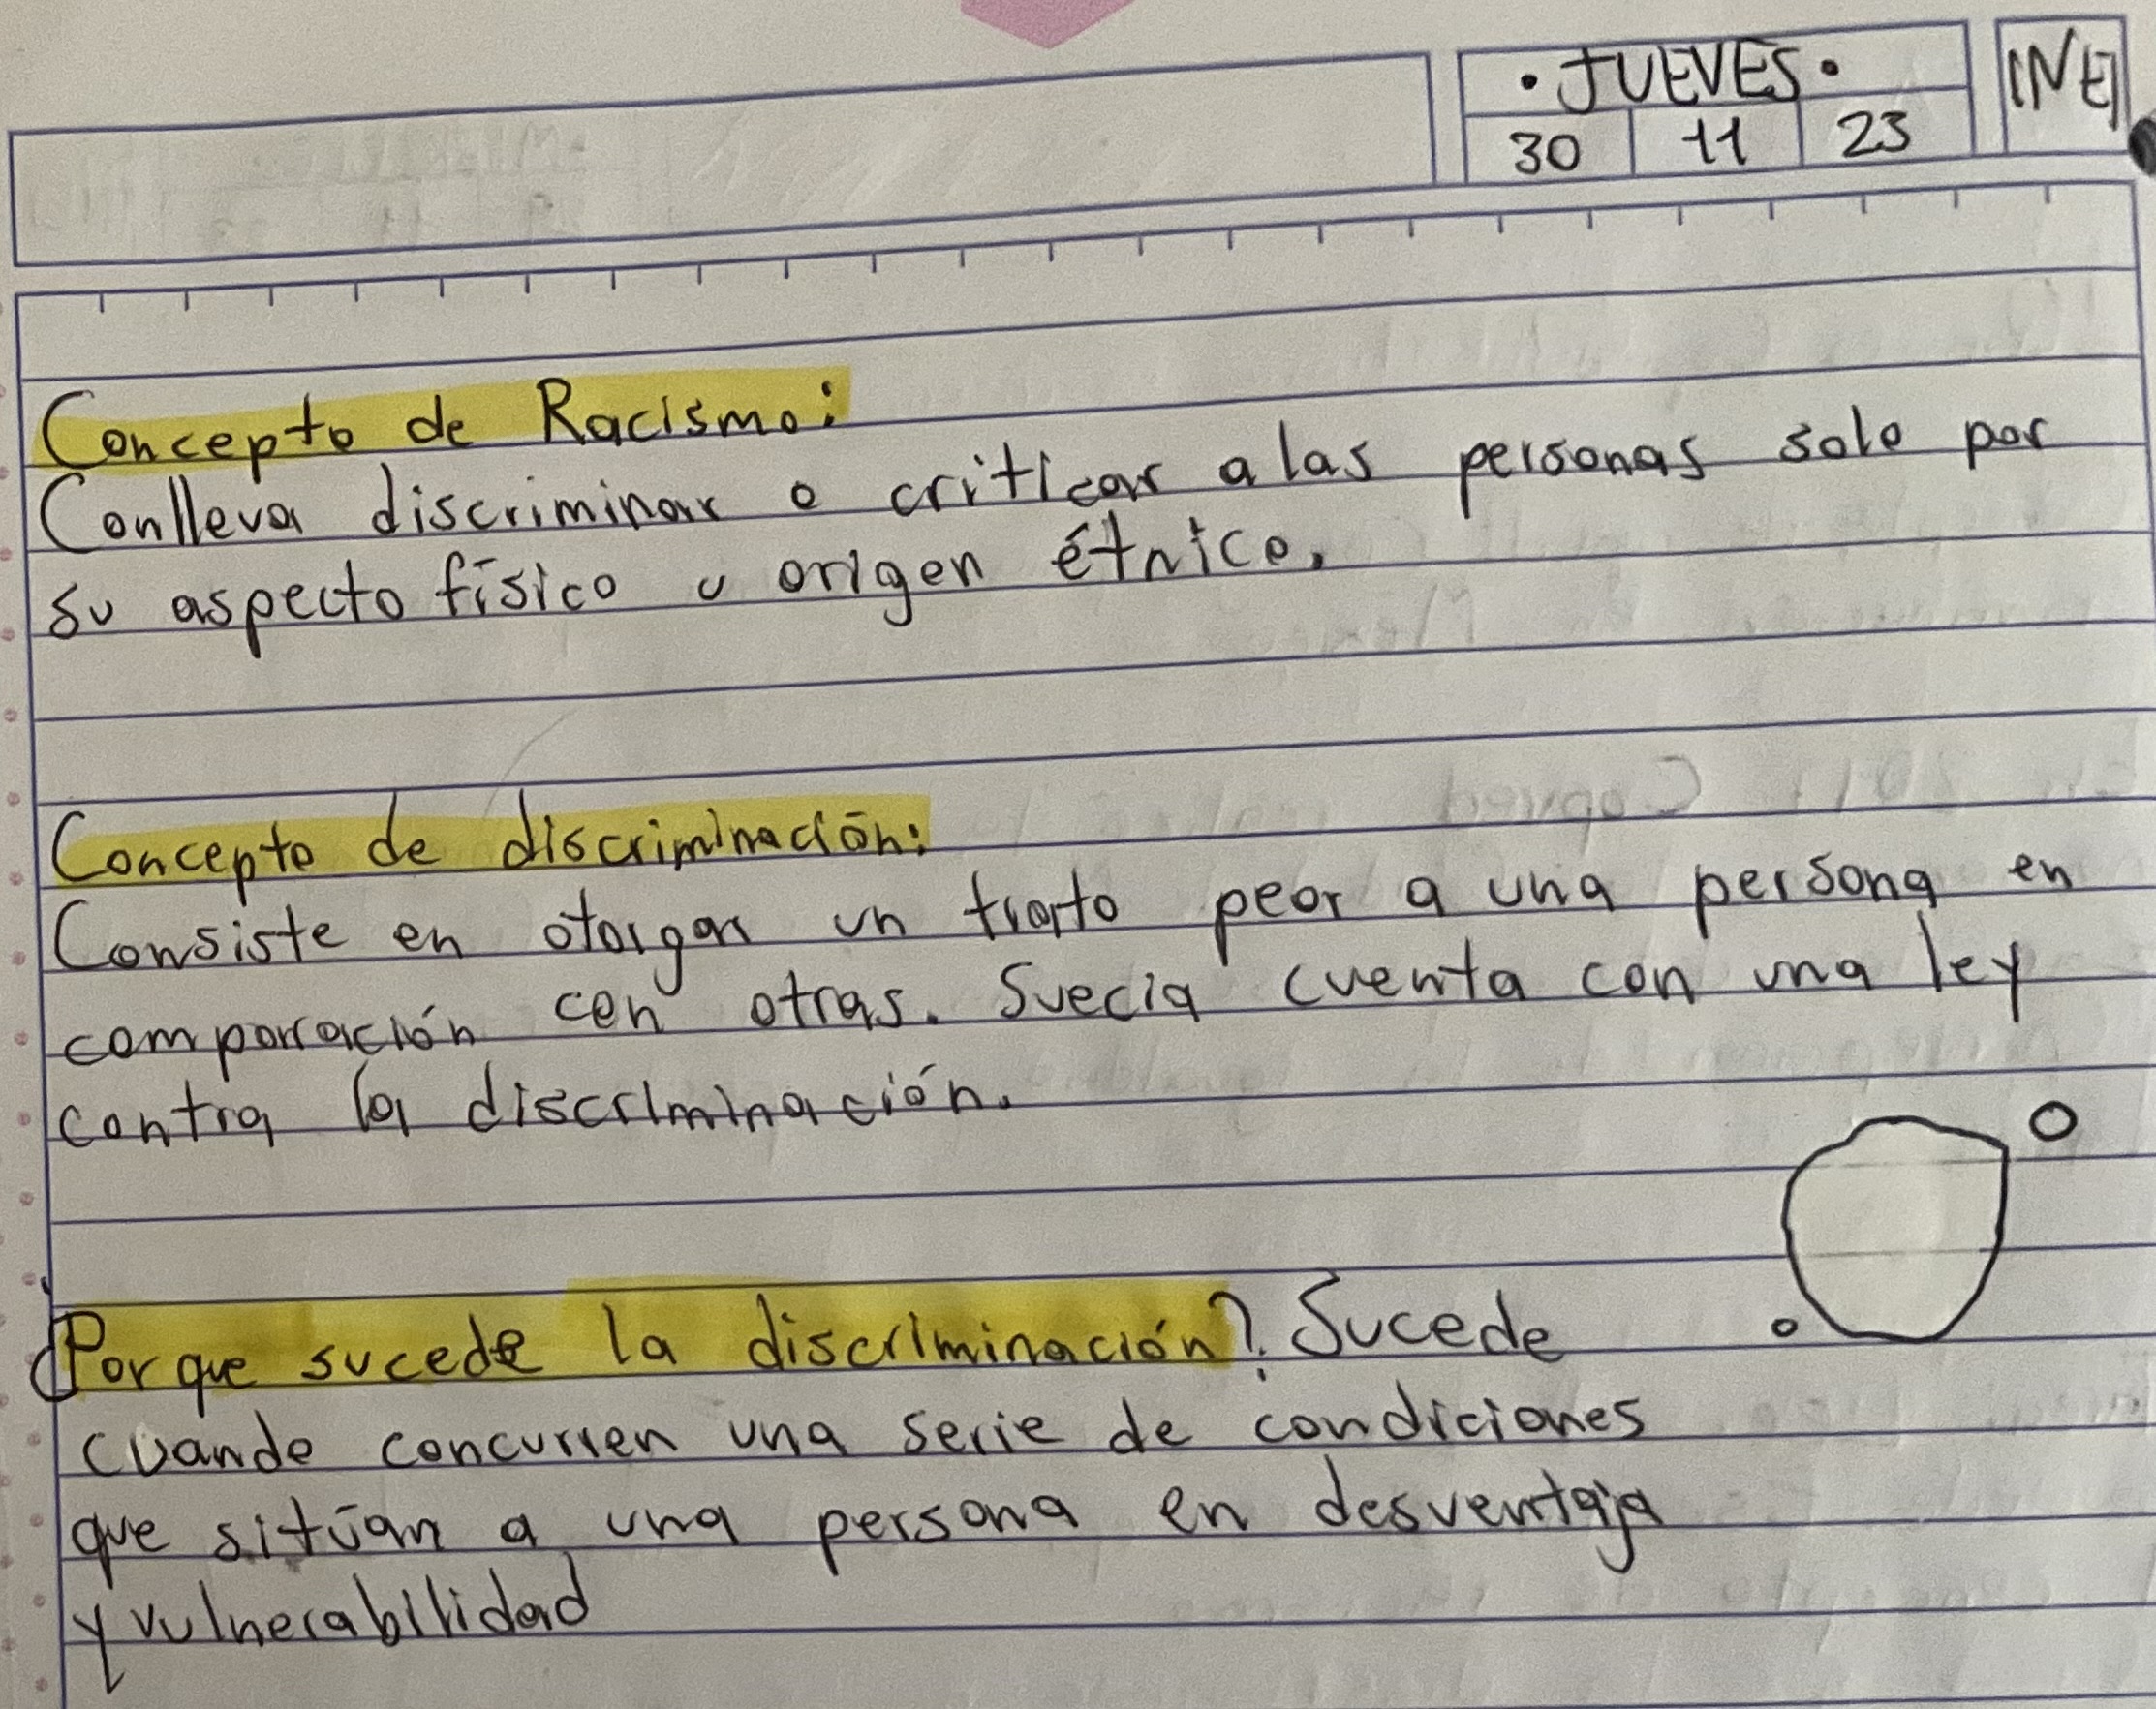 • JUEVES •
30 11 23
INE
Concepto de Racismo:
Conlleva discriminar o criticar a las personas solo por
su aspecto físico u origen étnico.
Concepto de discriminación:
Consiste en otorgar un trato peor a una persona en
comparación con otras. Suecia cuenta con una ley
contra la discriminación.
¿Por que sucede la discriminación? Sucede
cuando concurren una serie de condiciones
que sitúan a una persona en desventaja
y vulnerabilidad